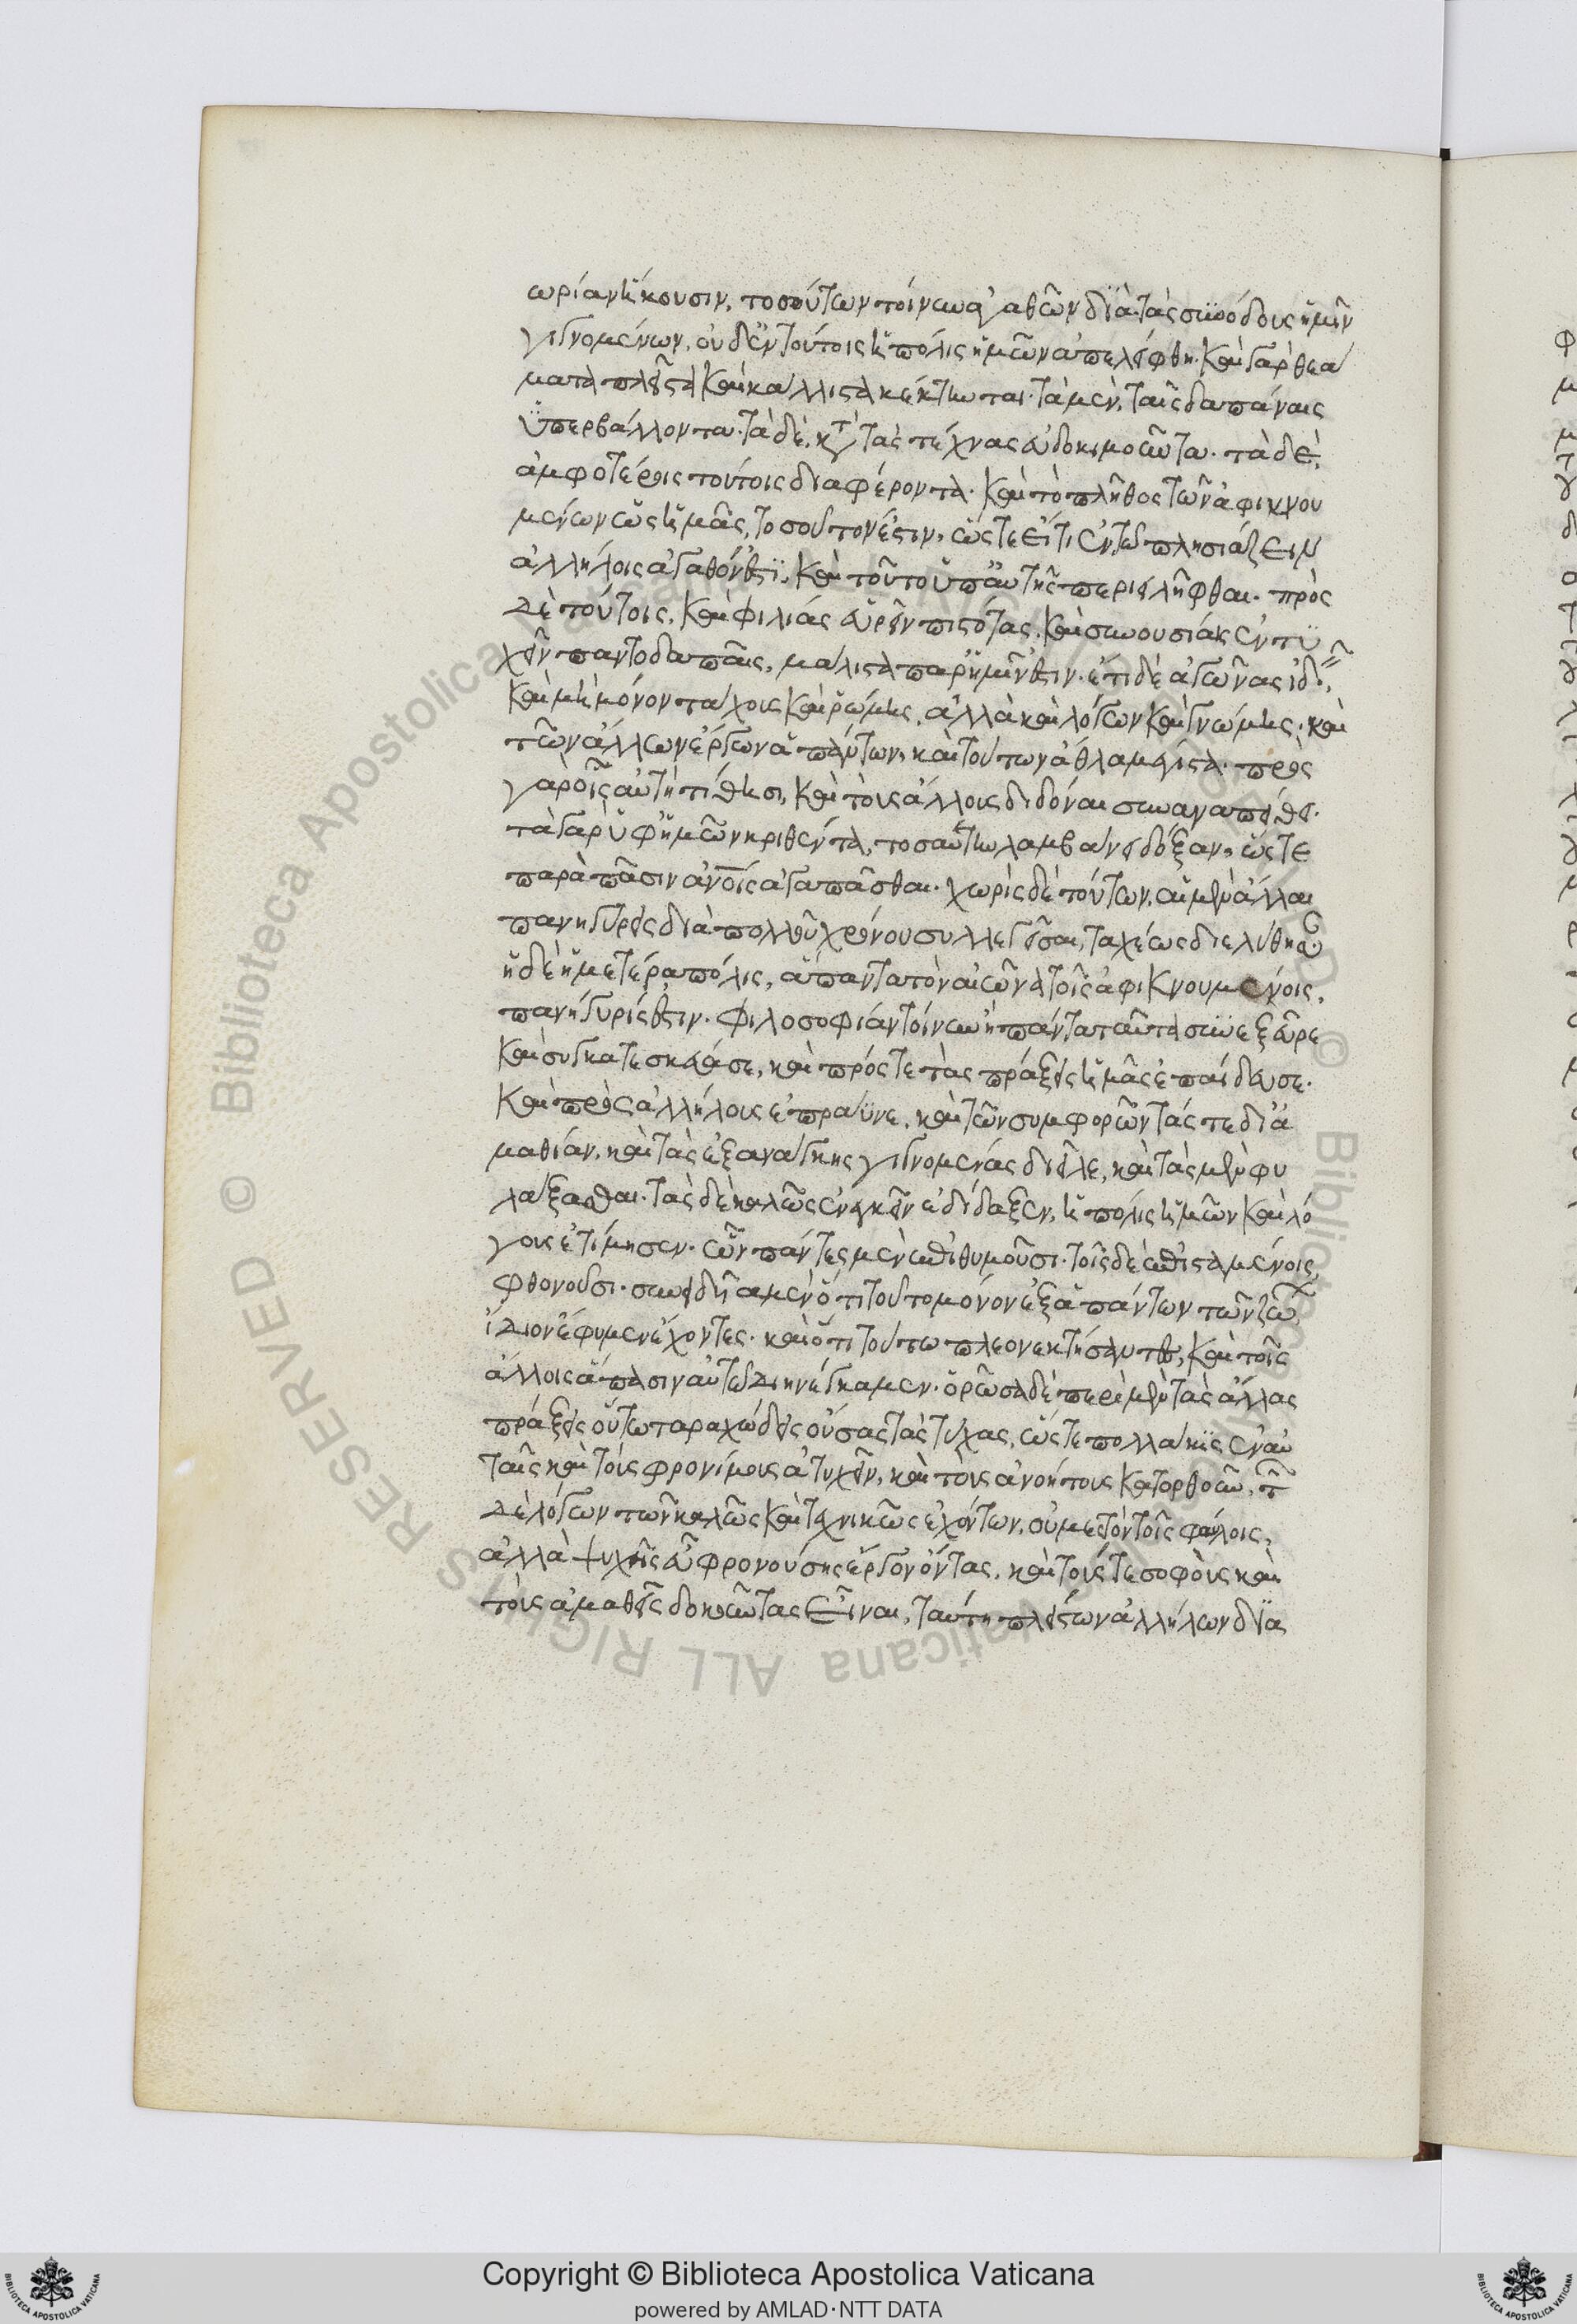 ωρίαν ἥκουσιν, τοσούτων τοίνυν ἀγαθῶν διὰ τὰς συνόδους ἡμῖν
γιγνομένων, οὐδ' ἐν τούτοις ἡ πόλις ἡμῶν ἀπελείφθη. καὶ γὰρ θεά
ματα πλεῖστα καὶ κάλλιστα κέκτηνται. τὰ μὲν, ταῖς δαπάναις
ὑπερβάλλοντα. τὰ δὲ, κτ̀ τὰς τέχνας εὐδοκιμοῦντα. τὰ δὲ,
ἀμφοτέροις τούτοις διαφέροντα. καὶ τὸ πλῆθος τῶν ἀφικνου
μένων ὡς ἡμᾶς, τοσοῦτον ἐστιν, ὥστε εἴ τι ἐν τῶ πλησιάζειν
ἀλλήλοις ἀγαθόν ἐστϊ, καὶ τοῦτο ὑπ' αὐτῆς περιειλῆφθαι. πρὸς
δὲ τούτοις, καὶ φιλίας εὑρεῖν πιστότας, καὶ συνουσίαις ἐντυ
χεῖν παντοδαπαῖς, μάλιστα παρ' ἡμῖν ἐστιν. ἔτι δὲ ἀγῶνας ἰδεῖν,
καὶ μὴ μόνον τάχους καὶ ῥώμης, ἀλλὰ καὶ λόγων καὶ γνώμης. καὶ
τῶν ἄλλων ἔργων ἁπάντων, καὶ τούτων ἆθλα μέγιστα. πρὸς
γὰρ οἷς αὐτὴ τίθησι, καὶ τοὺς ἄλλους διδόναι συναναπείθει.
τὰ γὰρ ὑφ' ἡμῶν κριθέντα, τοσαύτην λαμβάνει δόξαν, ὥστε
παρὰ πᾶσιν ἀν̅οις ἀγαπᾶσθαι. χωρὶς δὲ τούτων, αἱ μὲν ἄλλαι
πανηγύρεις διὰ πολλοῦ χρόνου συλλεγεῖσαι, ταχέως διελύθησαν
ἡ δὲ ἡμετέρα πόλις, ἅπαντα τὸν αἰῶνα τοῖς ἀφικνουμένοις,
πανήγυρίς ἐστιν. φιλοσοφίαν τοίνυν ἣ πάντα ταῦτα συνεξεῦρε
καὶ συγκατεσκεύασε, καὶ πρός τε τὰς πράξεις ἡμᾶς ἐπαίδευσε.
καὶ πρὸς ἀλλήλους ἐπράϋνε, καὶ τῶν συμφορῶν τάς τε δι' ἀ
μαθίαν, καὶ τὰς ἐξ ἀνάγκης γιγνομένας διεῖλε, καὶ τὰς μὲν φυ
λάξασθαι. τὰς δὲ καλῶς ἐνεγκεῖν ἐδίδαξεν, ἡ πόλις ἡμῶν καὶ λό
γους ἐτίμησεν. ὧν πάντες μὲν ἐπιθυμοῦσι. τοῖς δὲ ἐπισταμένοις
φθονοῦσι. συνειδυῖα μὲν ὅτι τοῦτο μόνον ἐξ ἁπάντων τῶν ζώων
ἴδιον ἔφυμεν ἔχοντες. καὶ ὅτι τούτω πλεονεκτήσαντες, καὶ τοῖς
ἄλλοις ἅπασιν αὐτῶ διηνέγκαμεν. ὁρῶσα δὲ περὶ μὲν τὰς ἄλλας
πράξεις οὕτω ταραχώδεις οὔσας τὰς τύχας, ὥστε πολλάκις ἐν αὐ
ταῖς καὶ τοὺς φρονίμους ἀτυχεῖν, καὶ τοὺς ἀνοήτους κατορθοῦν, τῶν
δὲ λόγων τῶν καλῶς καὶ τεχνικῶς ἐχόντων, οὐ μετὸν τοῖς φαύλοις,
ἀλλὰ ψυχῆς εὖ φρονούσης ἔργον ὄντας, καὶ τούς τε σοφοὺς καὶ
τοὺς ἀμαθεῖς δοκοῦντας εἶναι, ταύτη πλεῖστον ἀλλήλων δια
Copyright © Biblioteca Apostolica Vaticana
powered by AMLAD·NTT DATA